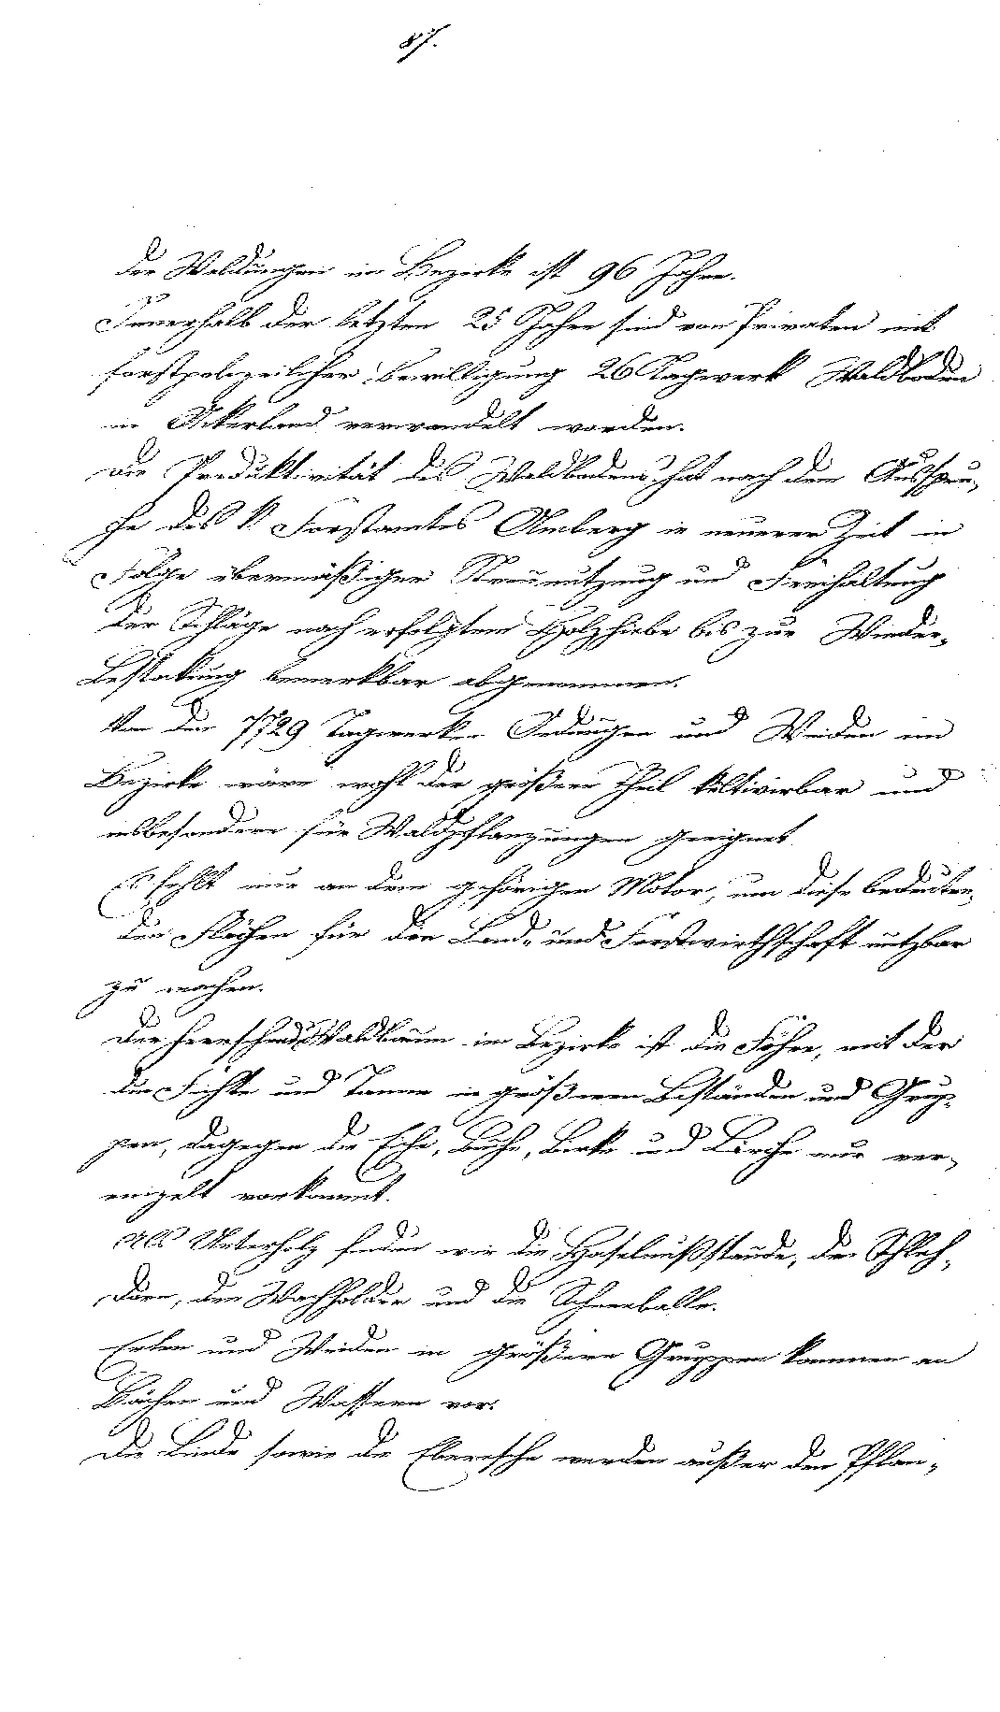 87.
der Waldungen im Bezirke ist 96 Jahre.
Innerhalb der letzten 25 Jahre sind von Privaten mit
forstpolizeilicher Bewilligung 26 Tagwerk Waldboden
in Ackerland verwandelt worden.
Die Produktivität des Waldbodens hat nach dem Ausspru-
che des k. Forstamtes Amberg in neuerer Zeit in
Folge übermäßiger Streunutzung und Freihaltung
der Schläge nach erfolgtem Holzhiebe bis zur Wieder-
bestokung bemerkbar abgenommen.
Von den 7729 Tagwerken Oedungen und Weiden im
Bezirke wäre wohl der größere Theil kultivirbar und
insbesondere für Waldpflanzungen geeignet.
Es fehlt nur an dem gehörigen Motor, um diese bedeuten-
den Flächen für die Land- und Forstwirthschaft nutzbar
zu machen.
Der herrschende Waldbaum im Bezirke ist die Föhre, mit der
die Fichte und Tanne in größeren Beständen und Grup-
pen, dagegen die Eiche, Buche, Birke und Lärche nur ver-
einzelt vorkommt.
Als Unterholz finden wir die Haselnußstaude, den Schleh-
dorn, den Wachholder und die Schneeballe.
Erlen und Weiden in größeren Gruppen kommen an
Bächen und Wassern vor.
Die Linde sowie die Eberesche werden außer den Pflan-